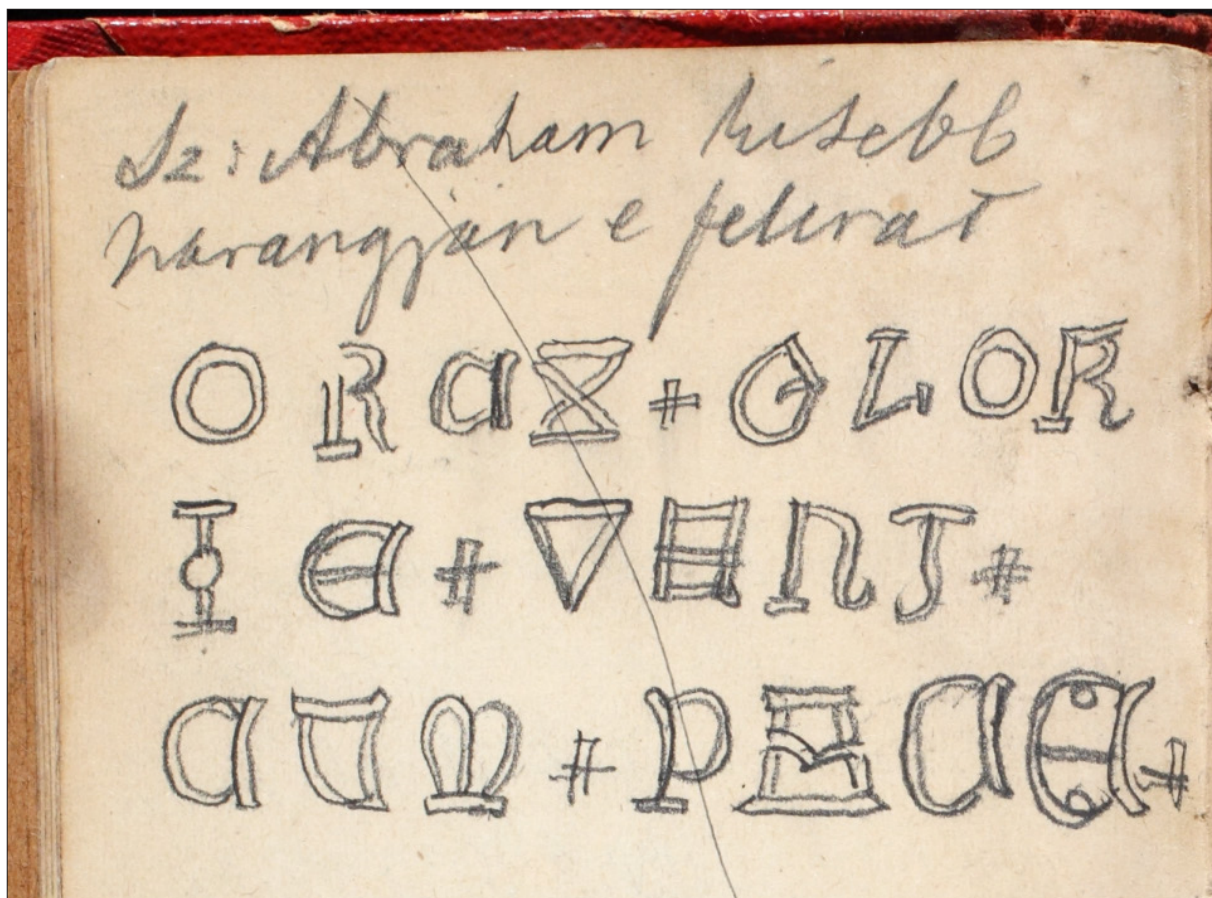 Sz: Abraham kisebb
harangján e felirat
OREX + GLOR
IE + VENI +
CUM + PACE +